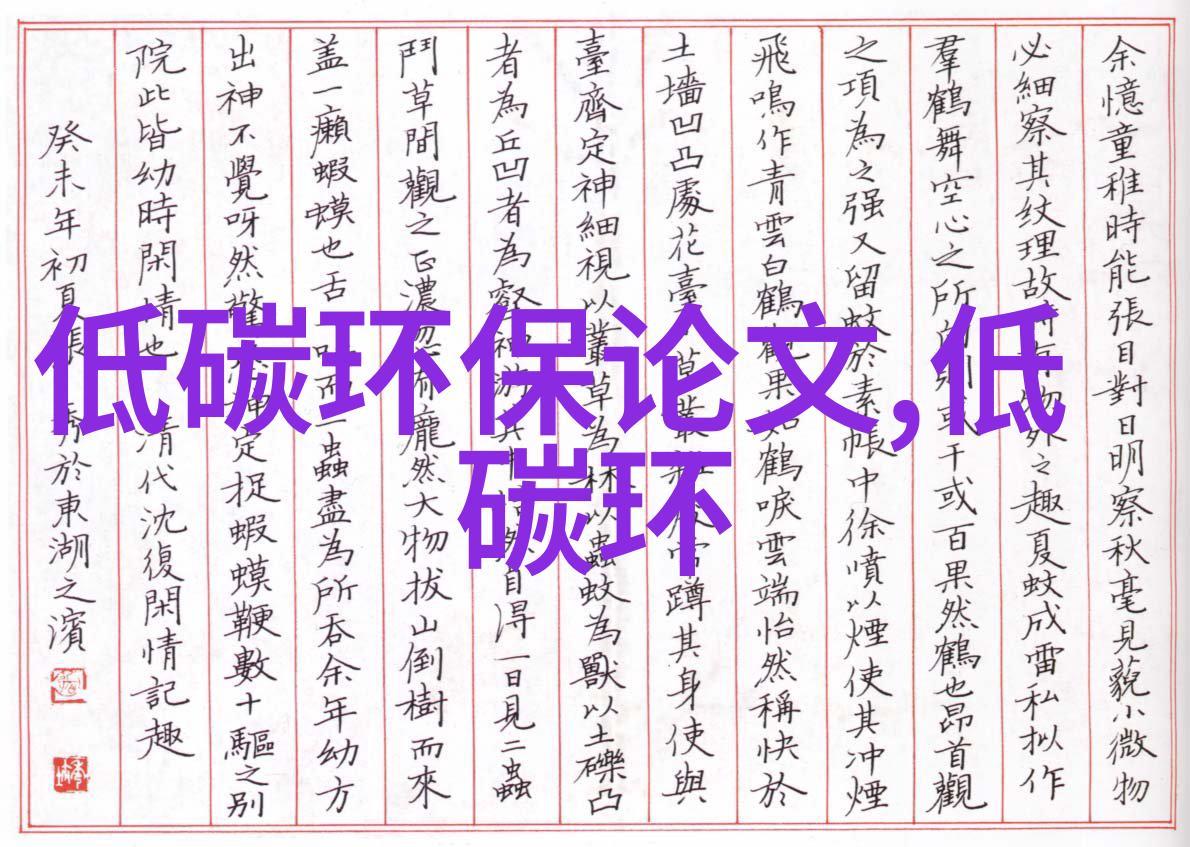 余憶童稚時能張目對日明察秋毫見藐小微物
必細察其纹理故時有物外之趣夏蚊成雷私拟作
羣鶴舞空心之所向則或千或百果然鶴也昂首觀
之項為之强又留蚊於素帳中徐噴以煙使其冲煙
飛鳴作青雲白鶴觀果如鶴唳雲端怡然稱快於
土墻凹凸處花臺草叢雜處常蹲其身使與
臺齊定神細視以叢草為林以蟲蚊為獸以土礫凸
者為丘凹者為壑神游其中怡然自得一日見二蟲
鬥草間觀之正濃忽有龐然大物拔山倒樹而來
盖一癩蝦蟆也舌一吐而二蟲盡為所吞余年幼方
出神不覺呀然驚恐神定捉蝦蟆鞭數十驅之別
院此皆幼時閑情也 清代沈復閑情記趣
癸未年初夏張秀於東湖之濱
低碳环保论文,低
碳环